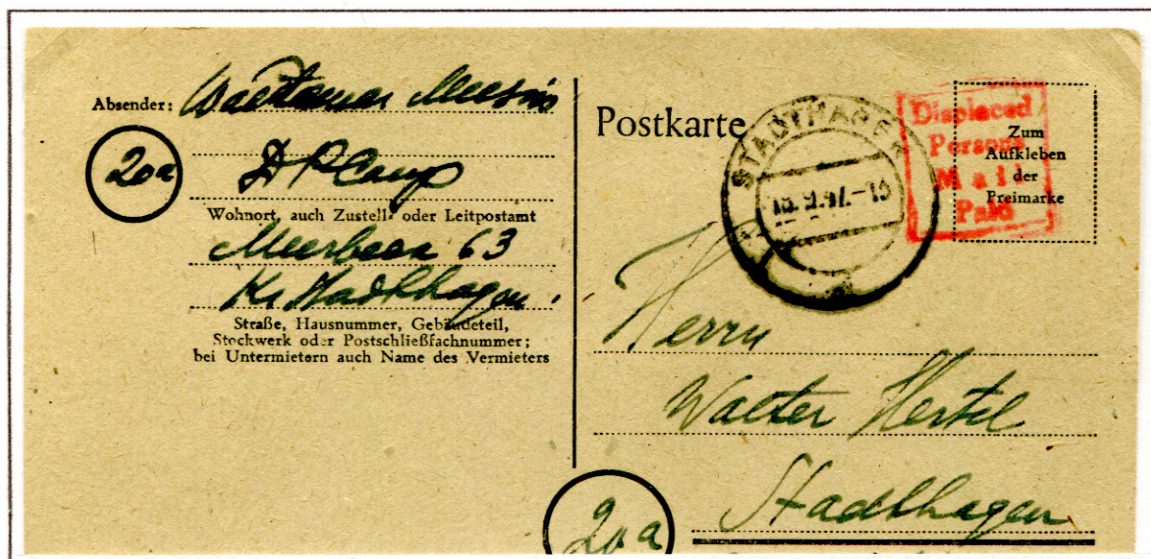 Absender: Woldemar
20a
DP Camp
Wohnort, auch Zustell- oder Leitpostamt
Meerbeck 63
Kr. Stadthagen
Straße, Hausnummer, Gebäudeteil,
Stockwerk oder Postschließfachnummer;
bei Untermietern auch Name des Vermieters
Postkarte
STADTHAGEN
Displaced
Persons
Mail
Paid
Zum
Aufkleben
der
Freimarke
Herrn
Walter Hertel
Stadthagen
20a